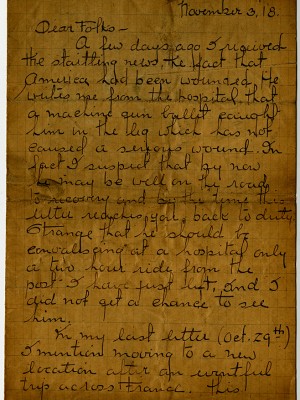 November 3, 18.
Dear Folks -
A few days ago I received
the startling news, the fact that
America had been wounded. He
writes me from the hospital, that
a machine gun bullet caught
him in the leg which has not
caused a serious wound. In
fact I suspect that by now
he may be well on the road
to recovery and by the time this
letter reaches you, back to duty.
Strange that he should be
convalescing at a hospital only
a two hour ride from the
post I have just left, and I
did not get a chance to see
him.
In my last letter (Oct. 29th)
I mention moving to a new
location after an eventful
trip across France. This